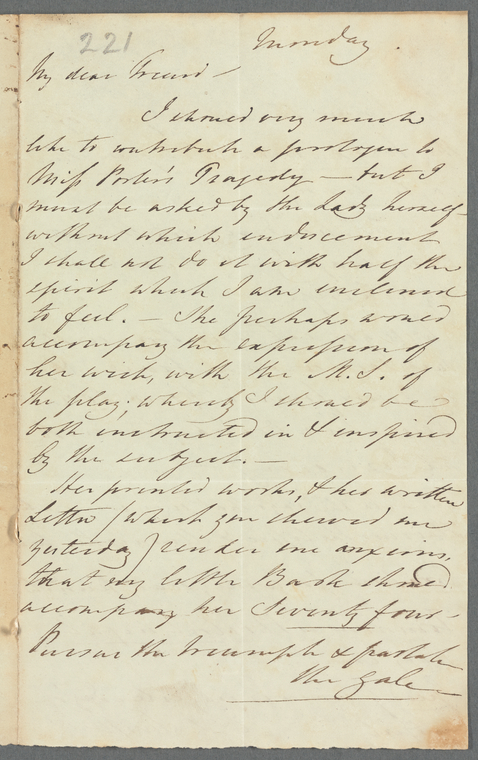 221
Monday.
My dear Friend –
I should very much
like to contribute a prologue to
Miss Porter's Tragedy – but I
must be asked by the Lady herself –
without which inducement
I shall not do it with half the
spirit which I am inclined
to feel. – She perhaps would
accompany the expression of
her wish, with the M.S. of
the play; whereby I should be
both instructed in & inspired
by the subject. –
Her printed works, & her written
Letter (which you shewed me
yesterday) render me anxious,
that my little Bark should
accompany her Seventy four –
Pursue the triumph & partake
the gale –